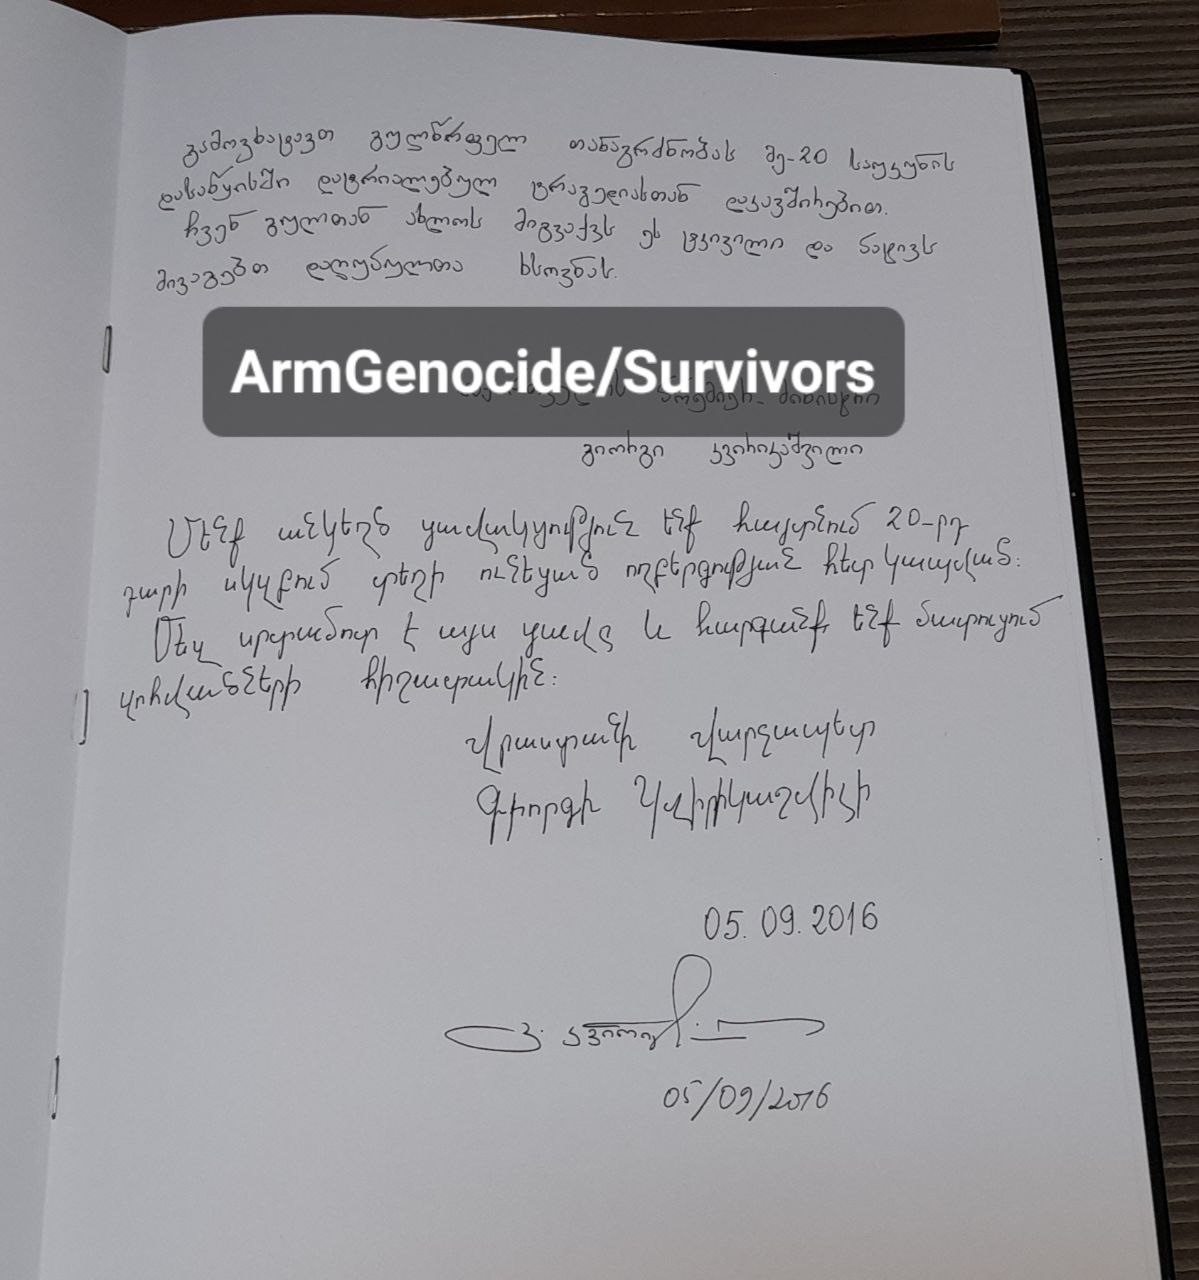 გამოვხატავთ გულწრფელ თანაგრძნობას მე-20 საუკუნის
დასაწყისში დატრიალებულ ტრაგედიასთან დაკავშირებით.
ჩვენ გულთან ახლოს მიგვაქვს ეს ტკივილი და პატივს
მივაგებთ დაღუპულთა ხსოვნას.
ArmGenocide/Survivors
პრემიერ-მინისტრი
გიორგი კვირიკაშვილი
Մենք անկեղծ ցավակցություն ենք հայտնում 20-րդ
դարի սկզբում տեղի ունեցած ողբերգության հետ կապված:
Մեզ սրտամոտ է այս ցավը և հարգանք ենք մատուցում
զոհվածների հիշատակին:
Վրաստանի վարչապետ
Գիորգի Կվիրիկաշվիլի
05.09.2016
05/09/2016